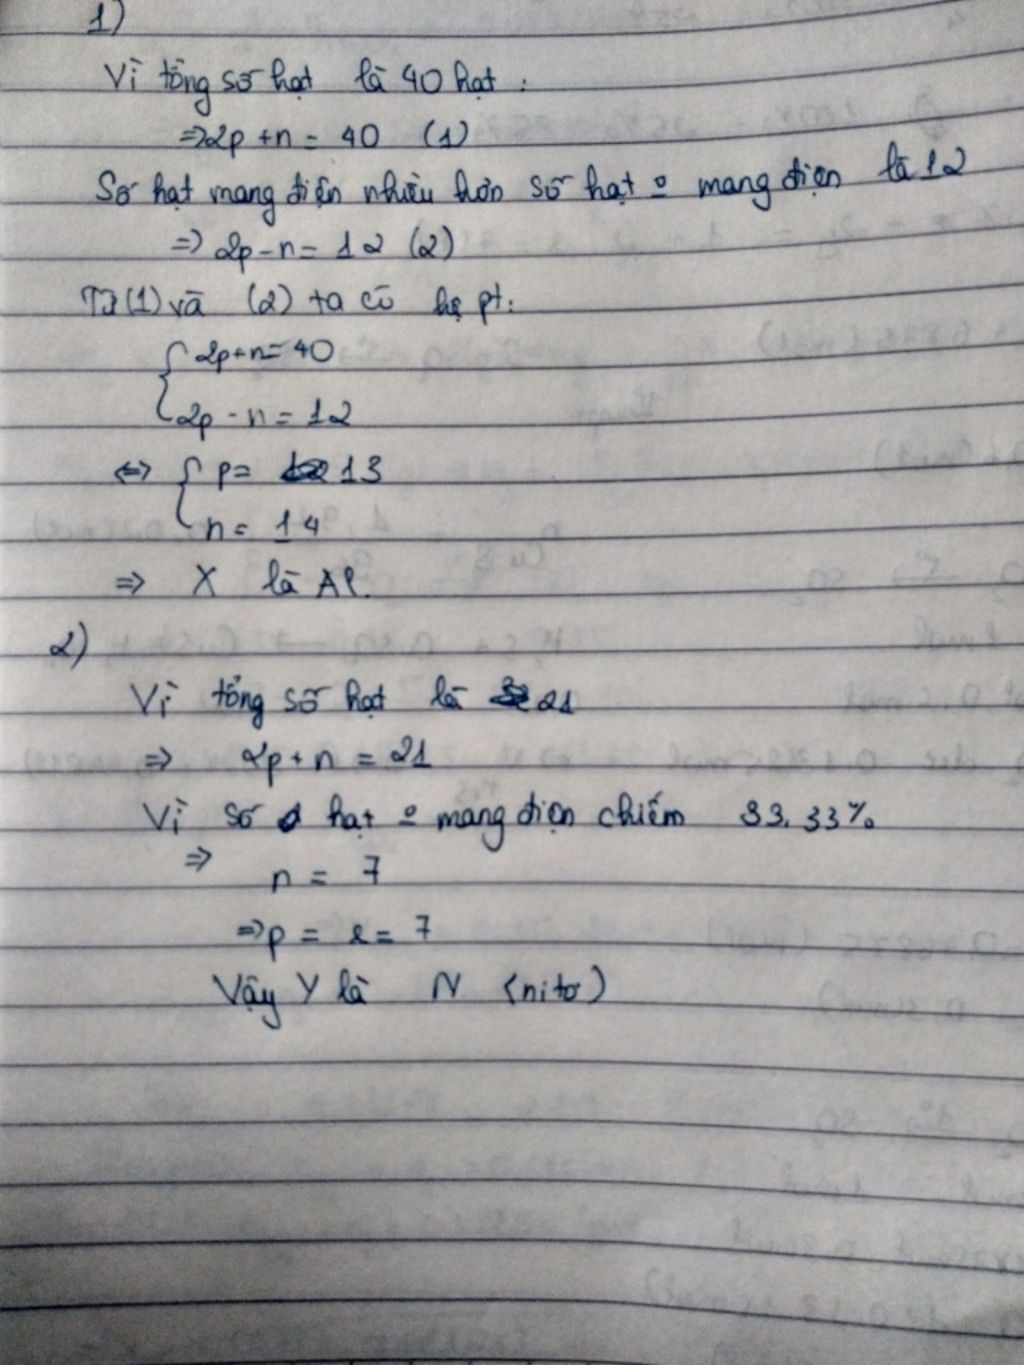 1)
Vì tổng số hạt là 40 hạt :
=> 2p + n = 40 (1)
Số hạt mang điện nhiều hơn số hạt o mang điện là 12
=> 2p - n = 12 (2)
Từ (1) và (2) ta có hệ pt:
{ 2p + n = 40
2p - n = 12
<=> { p = 13
n = 14
=> X là Al.
2)
Vì tổng số hạt là 21
=> 2p + n = 21
Vì số hạt o mang điện chiếm 33,33%
=>
n = 7
=> p = e = 7
Vậy Y là N (nitơ)